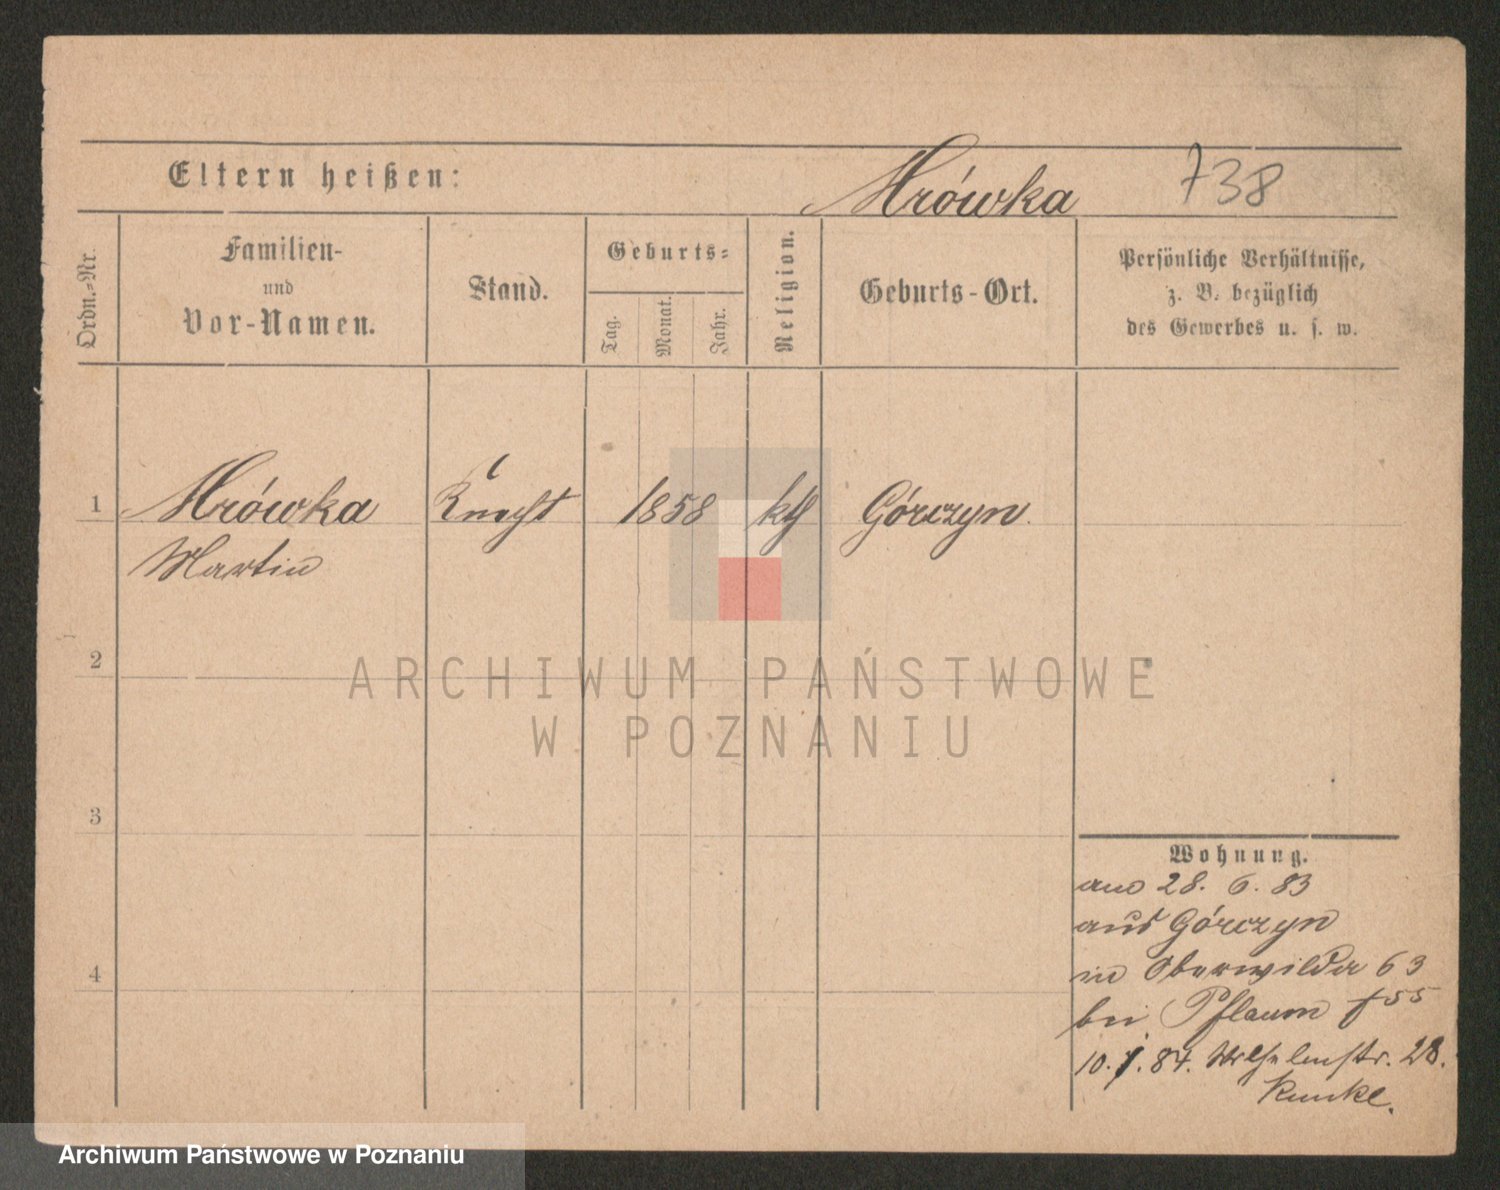 Eltern heißen:
Mrówka 738
Ordn.-Nr.
Familien-
und
Vor-Namen.
Stand.
Geburts-
Tag.
Monat.
Jahr.
Religion.
Geburts-Ort.
Persönliche Verhältnisse,
z. B. bezüglich
des Gewerbes u. s. w.
1 Mrówka Knecht 1858 kth Górczyn
Martin
2
ARCHIWUM PAŃSTWOWE
W POZNANIU
3
Wohnung.
28. 6. 83
aus Górczyn
4
in Oberwilda 63
bei Pflaum
10. 84. Wilhelmstr. 28.
Kunkel.
Archiwum Państwowe w Poznaniu